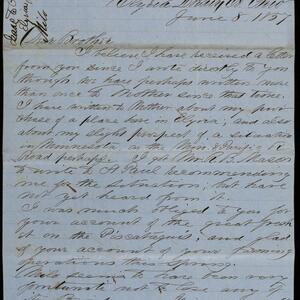 Elyria Ohio
June 8 1857
Dear Brother
I believe I have received a letter
from you since I wrote directly to you
though We have perhaps written more
than once to Mother since that time
I have written to Mother about my pur
chase of a place here in Elyria; and also
about my slight prospect of a situation
in Minnesota on the
Road perhaps. I got Wm R B Mason
to write to St Paul recommending
me for the situation; but have
not yet heard from it
I was much obliged to you for
your account of the great fresh
et on the Piscataquis; and glad
of your account of your farming
operations this Spring.
seems to have been very
fortunate not to lose any